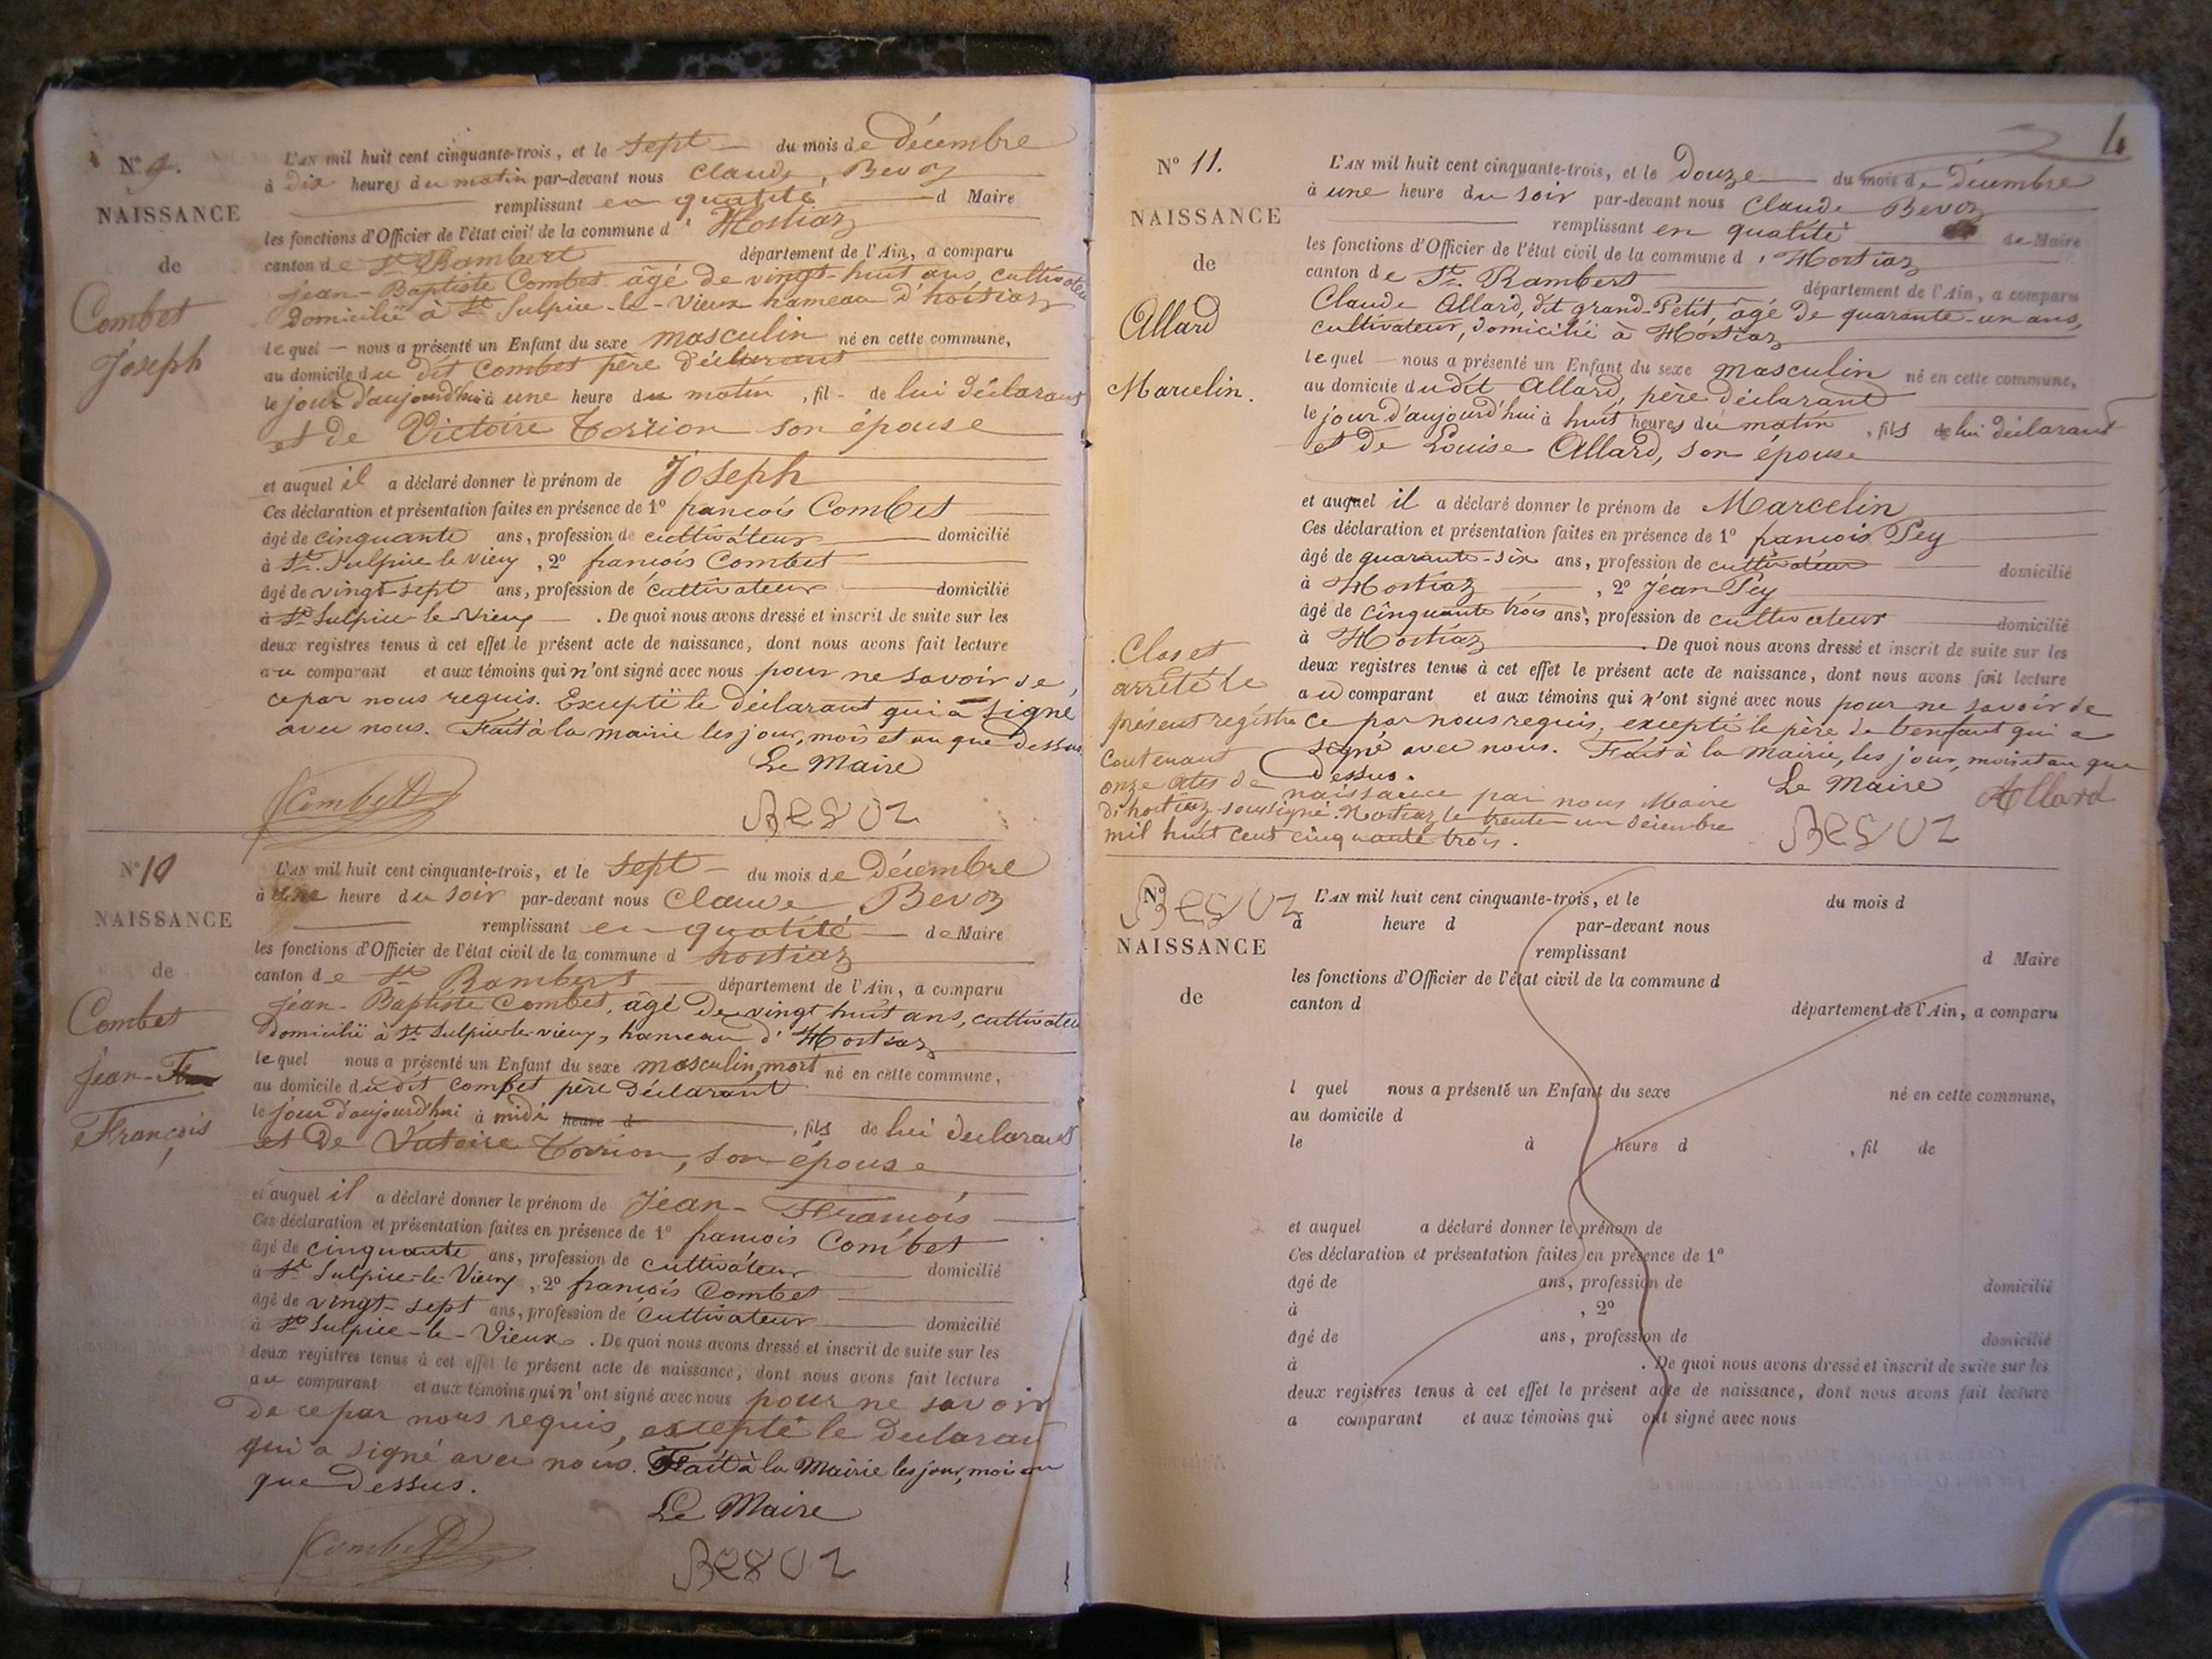 N° 9.
NAISSANCE
de
Combet
Joseph
L'AN mil huit cent cinquante-trois, et le sept du mois de décembre
à dix heures du matin par-devant nous Claude Bevoz
remplissant en qualité d Maire
les fonctions d'Officier de l'état civil de la commune d'Hostiaz
canton de St Rambert département de l'Ain, a comparu
Jean-Baptiste Combet âgé de vingt-huit ans, cultivateur
domicilié à St Sulpice-le-Vieux hameau d'hostiaz
lequel nous a présenté un Enfant du sexe masculin né en cette commune,
au domicile du dit Combet père déclarant
le jour d'aujourd'hui à une heure du matin, fil de lui déclarant
et de Victoire son épouse
et auquel il a déclaré donner le prénom de Joseph
Ces déclaration et présentation faites en présence de 1° francois Combet
âgé de cinquante ans, profession de cultivateur domicilié
à St Sulpice le Vieux, 2° francois Combet
âgé de vingt-sept ans, profession de cultivateur domicilié
à St Sulpice-le-Vieux. De quoi nous avons dressé et inscrit de suite sur les
deux registres tenus à cet effet le présent acte de naissance, dont nous avons fait lecture
au comparant et aux témoins qui n'ont signé avec nous pour ne savoir de
ce par nous requis. Excepté le déclarant qui a signé
avec nous. Fait à la mairie les jour, mois et an que dessus
Le Maire
Combet
Bevoz
N° 10
NAISSANCE
de
Combet
Jean-
François
L'AN mil huit cent cinquante-trois, et le sept du mois de Décembre
à une heure du soir par-devant nous Claude Bevoz
remplissant en qualité de Maire
les fonctions d'Officier de l'état civil de la commune d hostiaz
canton de St Rambert département de l'Ain, a comparu
Jean-Baptiste Combet, âgé de vingt huit ans, cultivateur
domicilié à St Sulpice-le-vieux, hameau d'Hostiaz
lequel nous a présenté un Enfant du sexe masculin, mort né en cette commune,
au domicile du dit Combet père déclarant
le jour d'aujourd'hui à midi heure d, fils de lui déclarant
et de Victoire son épouse
et auquel il a déclaré donner le prénom de Jean-François
Ces déclaration et présentation faites en présence de 1° francois Combet
âgé de cinquante ans, profession de cultivateur domicilié
à St Sulpice-le-Vieux, 2° francois Combet
âgé de vingt-sept ans, profession de cultivateur domicilié
à St Sulpice-le-Vieux. De quoi nous avons dressé et inscrit de suite sur les
deux registres tenus à cet effet le présent acte de naissance, dont nous avons fait lecture
au comparant et aux témoins qui n'ont signé avec nous pour ne savoir
de ce par nous requis, excepté le déclarant
qui a signé avec nous. Fait à la Mairie les jour, mois an
que dessus.
Le Maire
Combet
Bevoz
4
N° 11.
NAISSANCE
de
Allard
Marcelin.
L'AN mil huit cent cinquante-trois, et le Douze du mois de décembre
à une heure du soir par-devant nous Claude Bevoz
remplissant en qualité de Maire
les fonctions d'Officier de l'état civil de la commune d'Hostiaz
canton de St Rambert département de l'Ain, a comparu
Claude Allard, dit grand-Petit, âgé de quarante-un ans,
cultivateur, domicilié à Hostiaz
lequel nous a présenté un Enfant du sexe masculin né en cette commune,
au domicile dudit Allard, père déclarant
le jour d'aujourd'hui à huit heures du matin, fils de lui déclarant
et de Louise Allard, son épouse
et auquel il a déclaré donner le prénom de Marcelin
Ces déclaration et présentation faites en présence de 1° francois Pey
âgé de quarante-six ans, profession de cultivateur domicilié
à Hostiaz, 2° Jean Pey
âgé de cinquante trois ans, profession de cultivateur domicilié
à Hostiaz. De quoi nous avons dressé et inscrit de suite sur les
deux registres tenus à cet effet le présent acte de naissance, dont nous avons fait lecture
au comparant et aux témoins qui n'ont signé avec nous pour ne savoir de
ce par nous requis, excepté le père de l'enfant qui a
signé avec nous. Fait à la Mairie, les jour, mois et an que
dessus.
Le Maire
Allard
Bevoz
Clos et
arrêté le
présent registre
contenant
onze actes de naissance par nous Maire
d'hostiaz soussigné. Hostiaz le trente un décembre
mil huit cent cinquante trois.
Bevoz
N°
NAISSANCE
de
L'AN mil huit cent cinquante-trois, et le du mois d
à heure d par-devant nous
remplissant d Maire
les fonctions d'Officier de l'état civil de la commune d
canton d département de l'Ain, a comparu
l quel nous a présenté un Enfant du sexe né en cette commune,
au domicile d
le à heure d, fil de
et auquel a déclaré donner le prénom de
Ces déclaration et présentation faites en présence de 1°
âgé de ans, profession de domicilié
à, 2°
âgé de ans, profession de domicilié
à. De quoi nous avons dressé et inscrit de suite sur les
deux registres tenus à cet effet le présent acte de naissance, dont nous avons fait lecture
a comparant et aux témoins qui ont signé avec nous